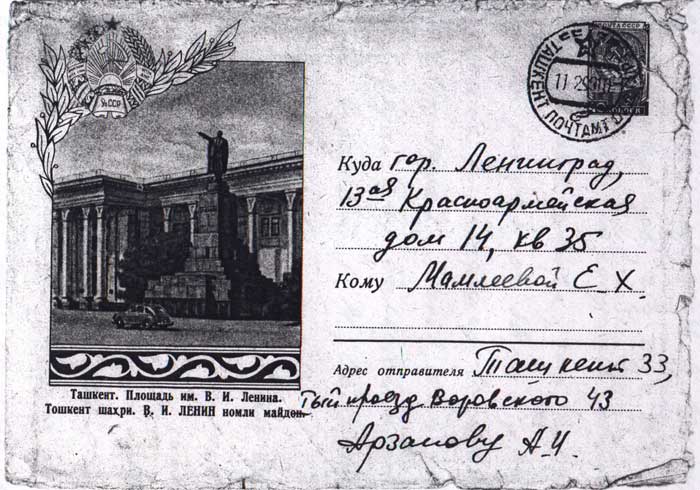 ПОЧТА СССР
ТАШКЕНТ ПОЧТАМТ
11 29
Уз ССР
Куда гор. Ленинград,
13ая Красноармейская
дом 14, кв 35
Кому Мамлеевой Е. Х.
Адрес отправителя Ташкент 33,
проезд Воровского 43
А. И.
Ташкент. Площадь им. В. И. Ленина.
Тошкент шаҳри. В. И. ЛЕНИН номли майдон.